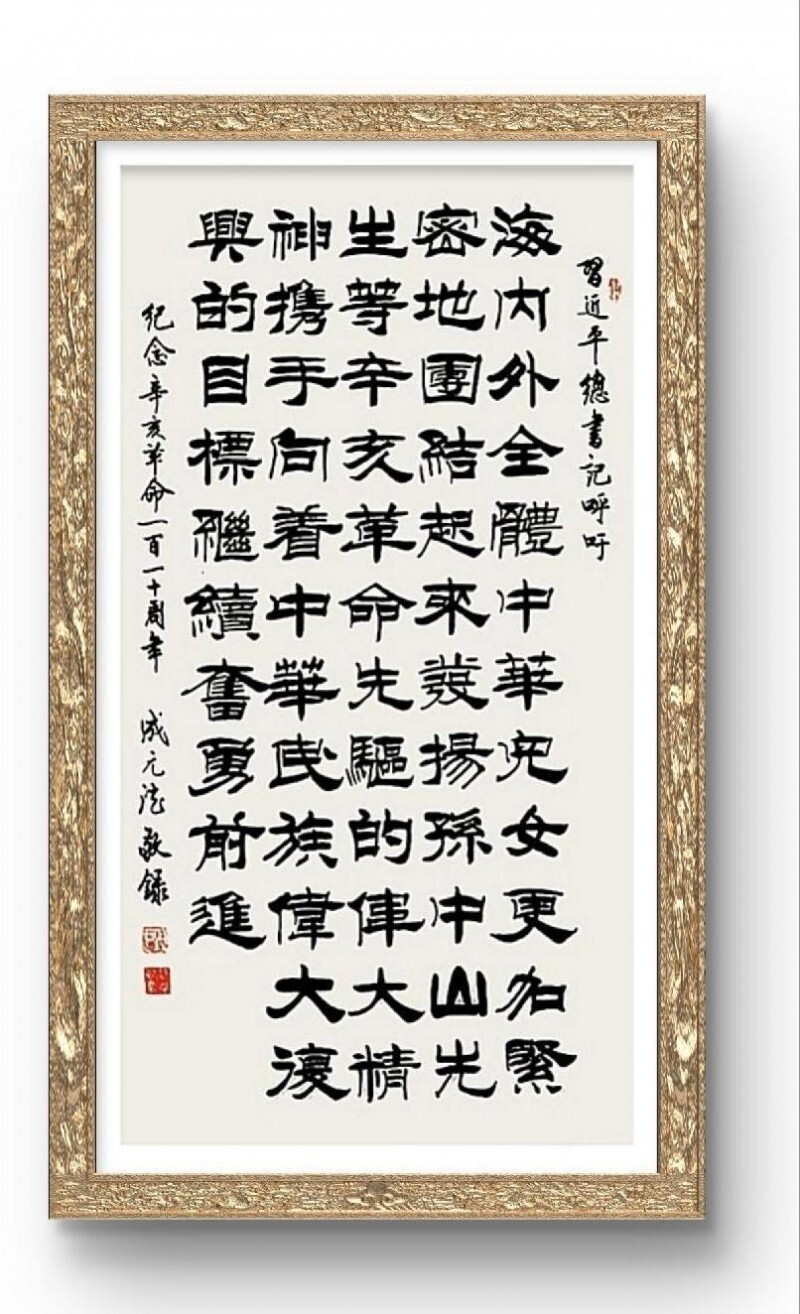 習近平總書記呼吁
海內外全體中華兒女更加緊
密地團結起來發揚孫中山先
生等辛亥革命先驅的偉大精
神攜手向着中華民族偉大復
興的目標繼續奮勇前進
紀念辛亥革命一百一十周年 成元法敬錄